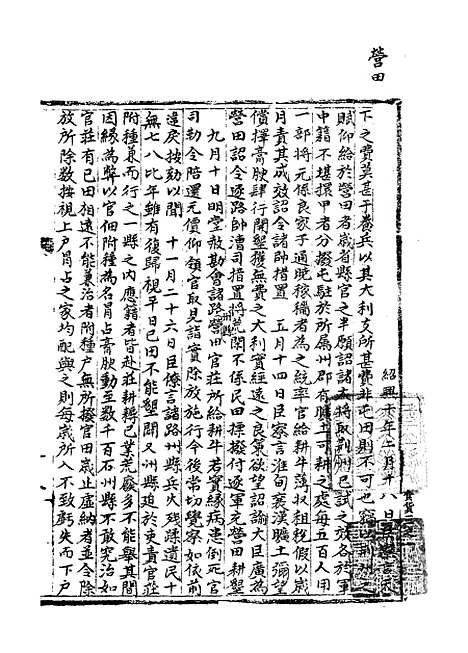 營田
紹興六年二月廿八日
下之費莫甚于養兵以其大利支所甚費非屯田則不可也
賦仰給於營田者歲省縣官之半願詔諸大將取荊州已試之效各於軍
中籍不堪擐甲者分撥屯駐於所屬州郡有曠土可耕之處每五百人用
一部將元係良家子通曉稼穡者為之統率官給耕牛薄収租稅假以歲
月責其成效詔令諸帥措置 五月十四日臣寮言淮甸襄漢曠土彌望
償擇膏腴肆行開墾獲無費之大利實經遠之良策欲望詔諭大臣廣為
營田詔令逐路帥漕司措置將荒閑不係民田摽撥付逐軍元營田耕墾
九月十日明堂赦勘會諸路營田官莊所給耕牛若實緣病患倒死官
司勒令陪還元價仰領官取見詣實除放施行今後常切覺察如依前
違戾按劾以聞 十一月二十六日臣僚言諸路州縣兵火殘踩遺民十
無七八比年雖有復歸視平日已田不能墾闢又州縣迫於吏責官莊
附種兼而行之一縣之內應籍者皆赴莊耕耨已業荒廢多不能舉其間
因緣為弊以官田附種為名肓占膏腴動至數千百石州縣不敢究治如
官莊有已田相遠不能兼治者附種戶無所撥官田歲止虛納者並令除
放所除數按視上戶肓占之家均配與之則每歲所入不致虧失而下戶